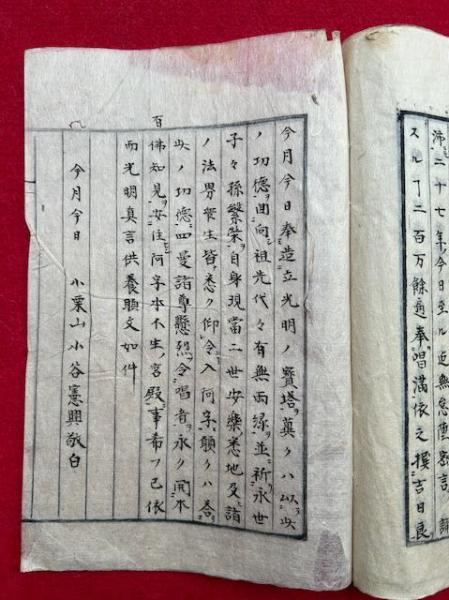 沛二十七年今日至ル迄無怠陀羅尼誦
スルヿ二百万餘遍奉唱滿依之撰吉日良
今月今日奉造立光明ノ寳塔冀クハ以此
ノ功德囬向祖先代々有無両縁並祈永世
子々孫繁榮自身現當二世安樂悉地及諸
ノ法界衆生皆悉ク仰令入阿字願クハ答
此ノ功德四曼諸尊懸照令唱者永ク開本
百
佛知見安住阿字本不生宮殿事希フ已依
而光明真言供養願文如件
今月今日 小栗山小谷憲興敬白